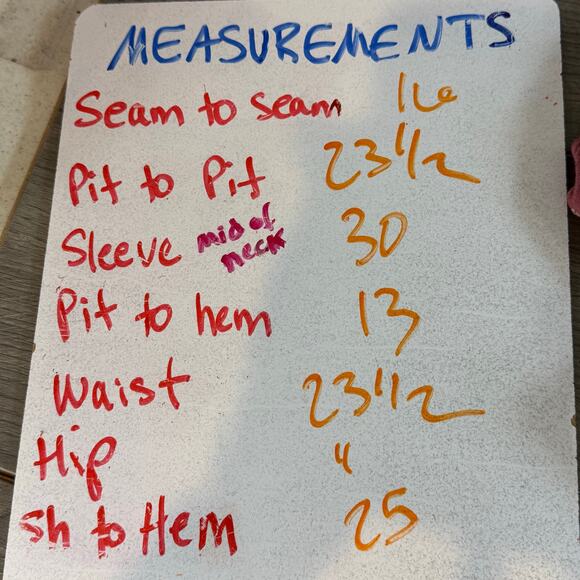 MEASUREMENTS
Seam to Seam 16
Pit to Pit 23 1/2
Sleeve mid of neck 30
Pit to hem 13
Waist 23 1/2
Hip "
Sh to Hem 25